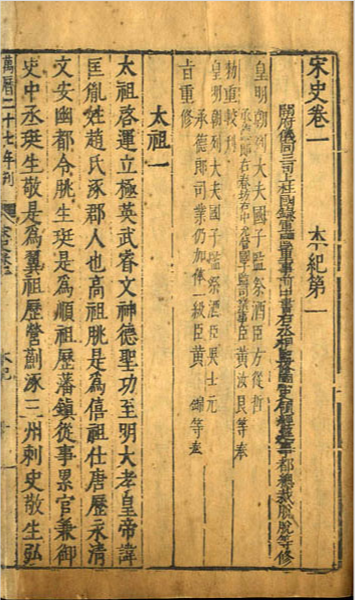 宋史卷一　本紀第一
開府儀同三司上柱國錄軍國重事前中書右丞相監修國史領經筵事都總裁脫脫等修
皇明朝列大夫國子監祭酒臣方從哲
承德郎右春坊右中允管國子監司業事臣黃汝良等奉
勅重較刊
皇明朝列大夫國子監祭酒臣吳士元
承德郎司業仍加俸一級臣黃錦等奉
旨重修
太祖一
太祖啓運立極英武睿文神德聖功至明大孝皇帝諱
匡胤姓趙氏涿郡人也高祖朓是為僖祖仕唐歷永清
文安幽都令朓生珽是為順祖歷藩鎮從事累官兼御
史中丞珽生敬是為翼祖歷營薊涿三州刺史敬生弘
萬曆二十七年刊　宋史卷一　本紀